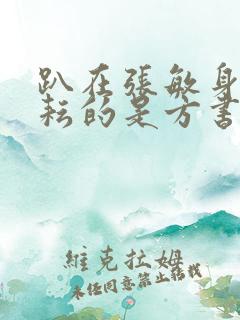 趴在張敏身
耘的是方書
維克拉姆
未經同意禁止轉載